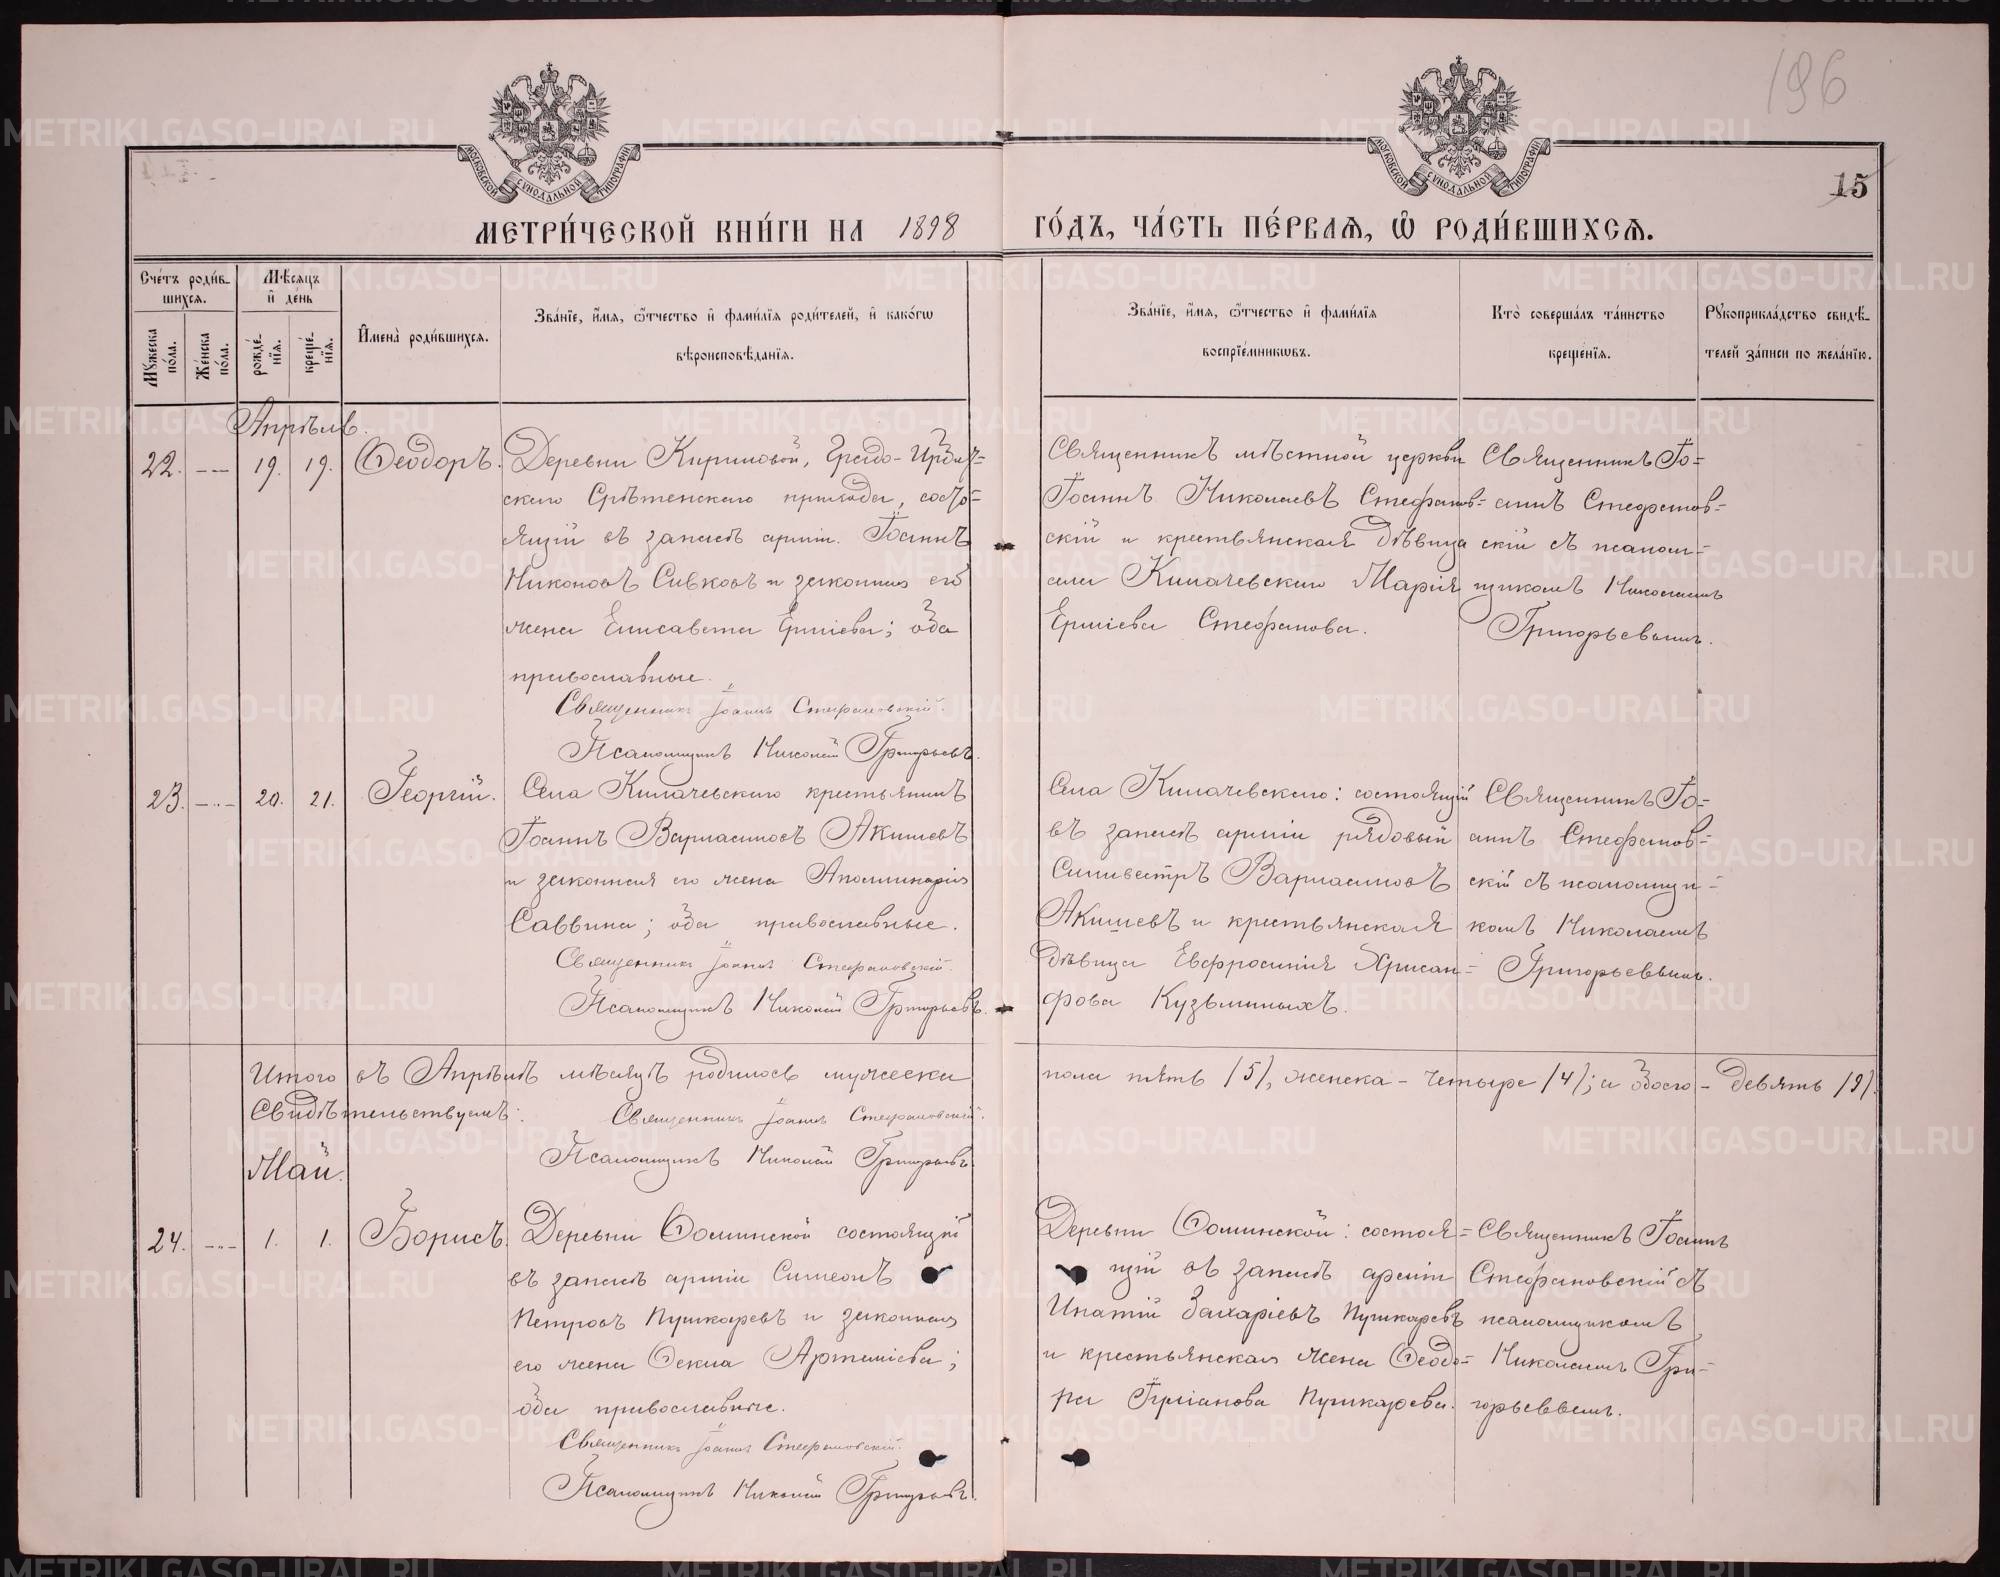 196
15
МЕТРИ́ЧЕСКОЙ КНИ́ГИ НА 1898 ГО́ДЪ, ЧА́СТЬ ПЕ́РВАЯ, Ѡ҆ РОДИ́ВШИХСЯ.
МОСКОВСКОЙ СѴНОДАЛЬНОЙ ТИПОГРАФІИ
МОСКОВСКОЙ СѴНОДАЛЬНОЙ ТИПОГРАФІИ
Сче́тъ роди́в-
шихся.
Мѣ́сяцъ
и҆ де́нь
Мꙋ́жеска по́ла.
Же́нска по́ла.
рожде́-
нїя.
креще́-
нїя.
И҆мена̀ роди́вшихся.
Зва́нїе, и҆́мя, ѻ҆́тчество и҆ фами́лїя роди́телей, и҆ како́гѡ
вѣроисповѣ́данїя.
Зва́нїе, и҆́мя, ѻ҆́тчество и҆ фами́лїя
воспрїе́мникѡвъ.
Кто̀ соверша́лъ та́инство
креще́нїя.
Рꙋкоприкла́дство свидѣ́-
телей за́писи по жела́нїю.
Апрѣль.
22. — 19. 19. Ѳеодоръ.
Деревни Кириловой, Грядо-Ирбит=
скаго Срѣтенскаго прихода, состо=
ящій въ запасѣ арміи Іоаннъ
Никоновъ Сивковъ и законная его
жена Елисавета Ерміева; оба
православные.
Священникъ Іоаннъ Стефановскій.
Псаломщикъ Николай Григорьевъ.
Священникъ мѣстной церкви
Іоаннъ Николаевъ Стефанов=
скій и крестьянская дѣвица
села Килачевскаго Марія
Ерміева Стефанова.
Священникъ Іо=
аннъ Стефанов=
скій съ псалом=
щикомъ Николаемъ
Григорьевымъ.
23. — 20. 21. Георгій.
Села Килачевскаго крестьянинъ
Іоаннъ Варлаамовъ Акишевъ
и законная его жена Аполлинарія
Саввина; оба православные.
Священникъ Іоаннъ Стефановскій.
Псаломщикъ Николай Григорьевъ.
Села Килачевскаго: состоящій
въ запасѣ арміи рядовый
Силивестръ Варлаамовъ
Акишевъ и крестьянская
дѣвица Евфросинія Хрисан=
фова Кузьминыхъ.
Священникъ Іо=
аннъ Стефанов=
скій съ псаломщи=
комъ Николаемъ
Григорьевымъ.
Итого въ Апрѣлѣ мѣсяцѣ родилось мужеска пола пять /5/, женска – четыре /4/; а обоего – девять /9/.
Свидѣтельствуемъ: Священникъ Іоаннъ Стефановскій.
Псаломщикъ Николай Григорьевъ.
Май.
24. — 1. 1. Борисъ.
Деревни Ѳоминской состоящій
въ запасѣ арміи Симеонъ
Петровъ Пушкаревъ и законная
его жена Ѳекла Артеміева;
оба православные.
Священникъ Іоаннъ Стефановскій.
Псаломщикъ Николай Григорьевъ.
Деревни Ѳоминской: состоя=
щій въ запасѣ арміи
Ипатій Захаріевъ Пушкаревъ
и крестьянская жена Ѳеодо=
ра Пушкарева.
Священникъ Іоаннъ
Стефановскій съ
псаломщикомъ
Николаемъ Гри=
горьевымъ.
METRIKI.GASO-URAL.RU